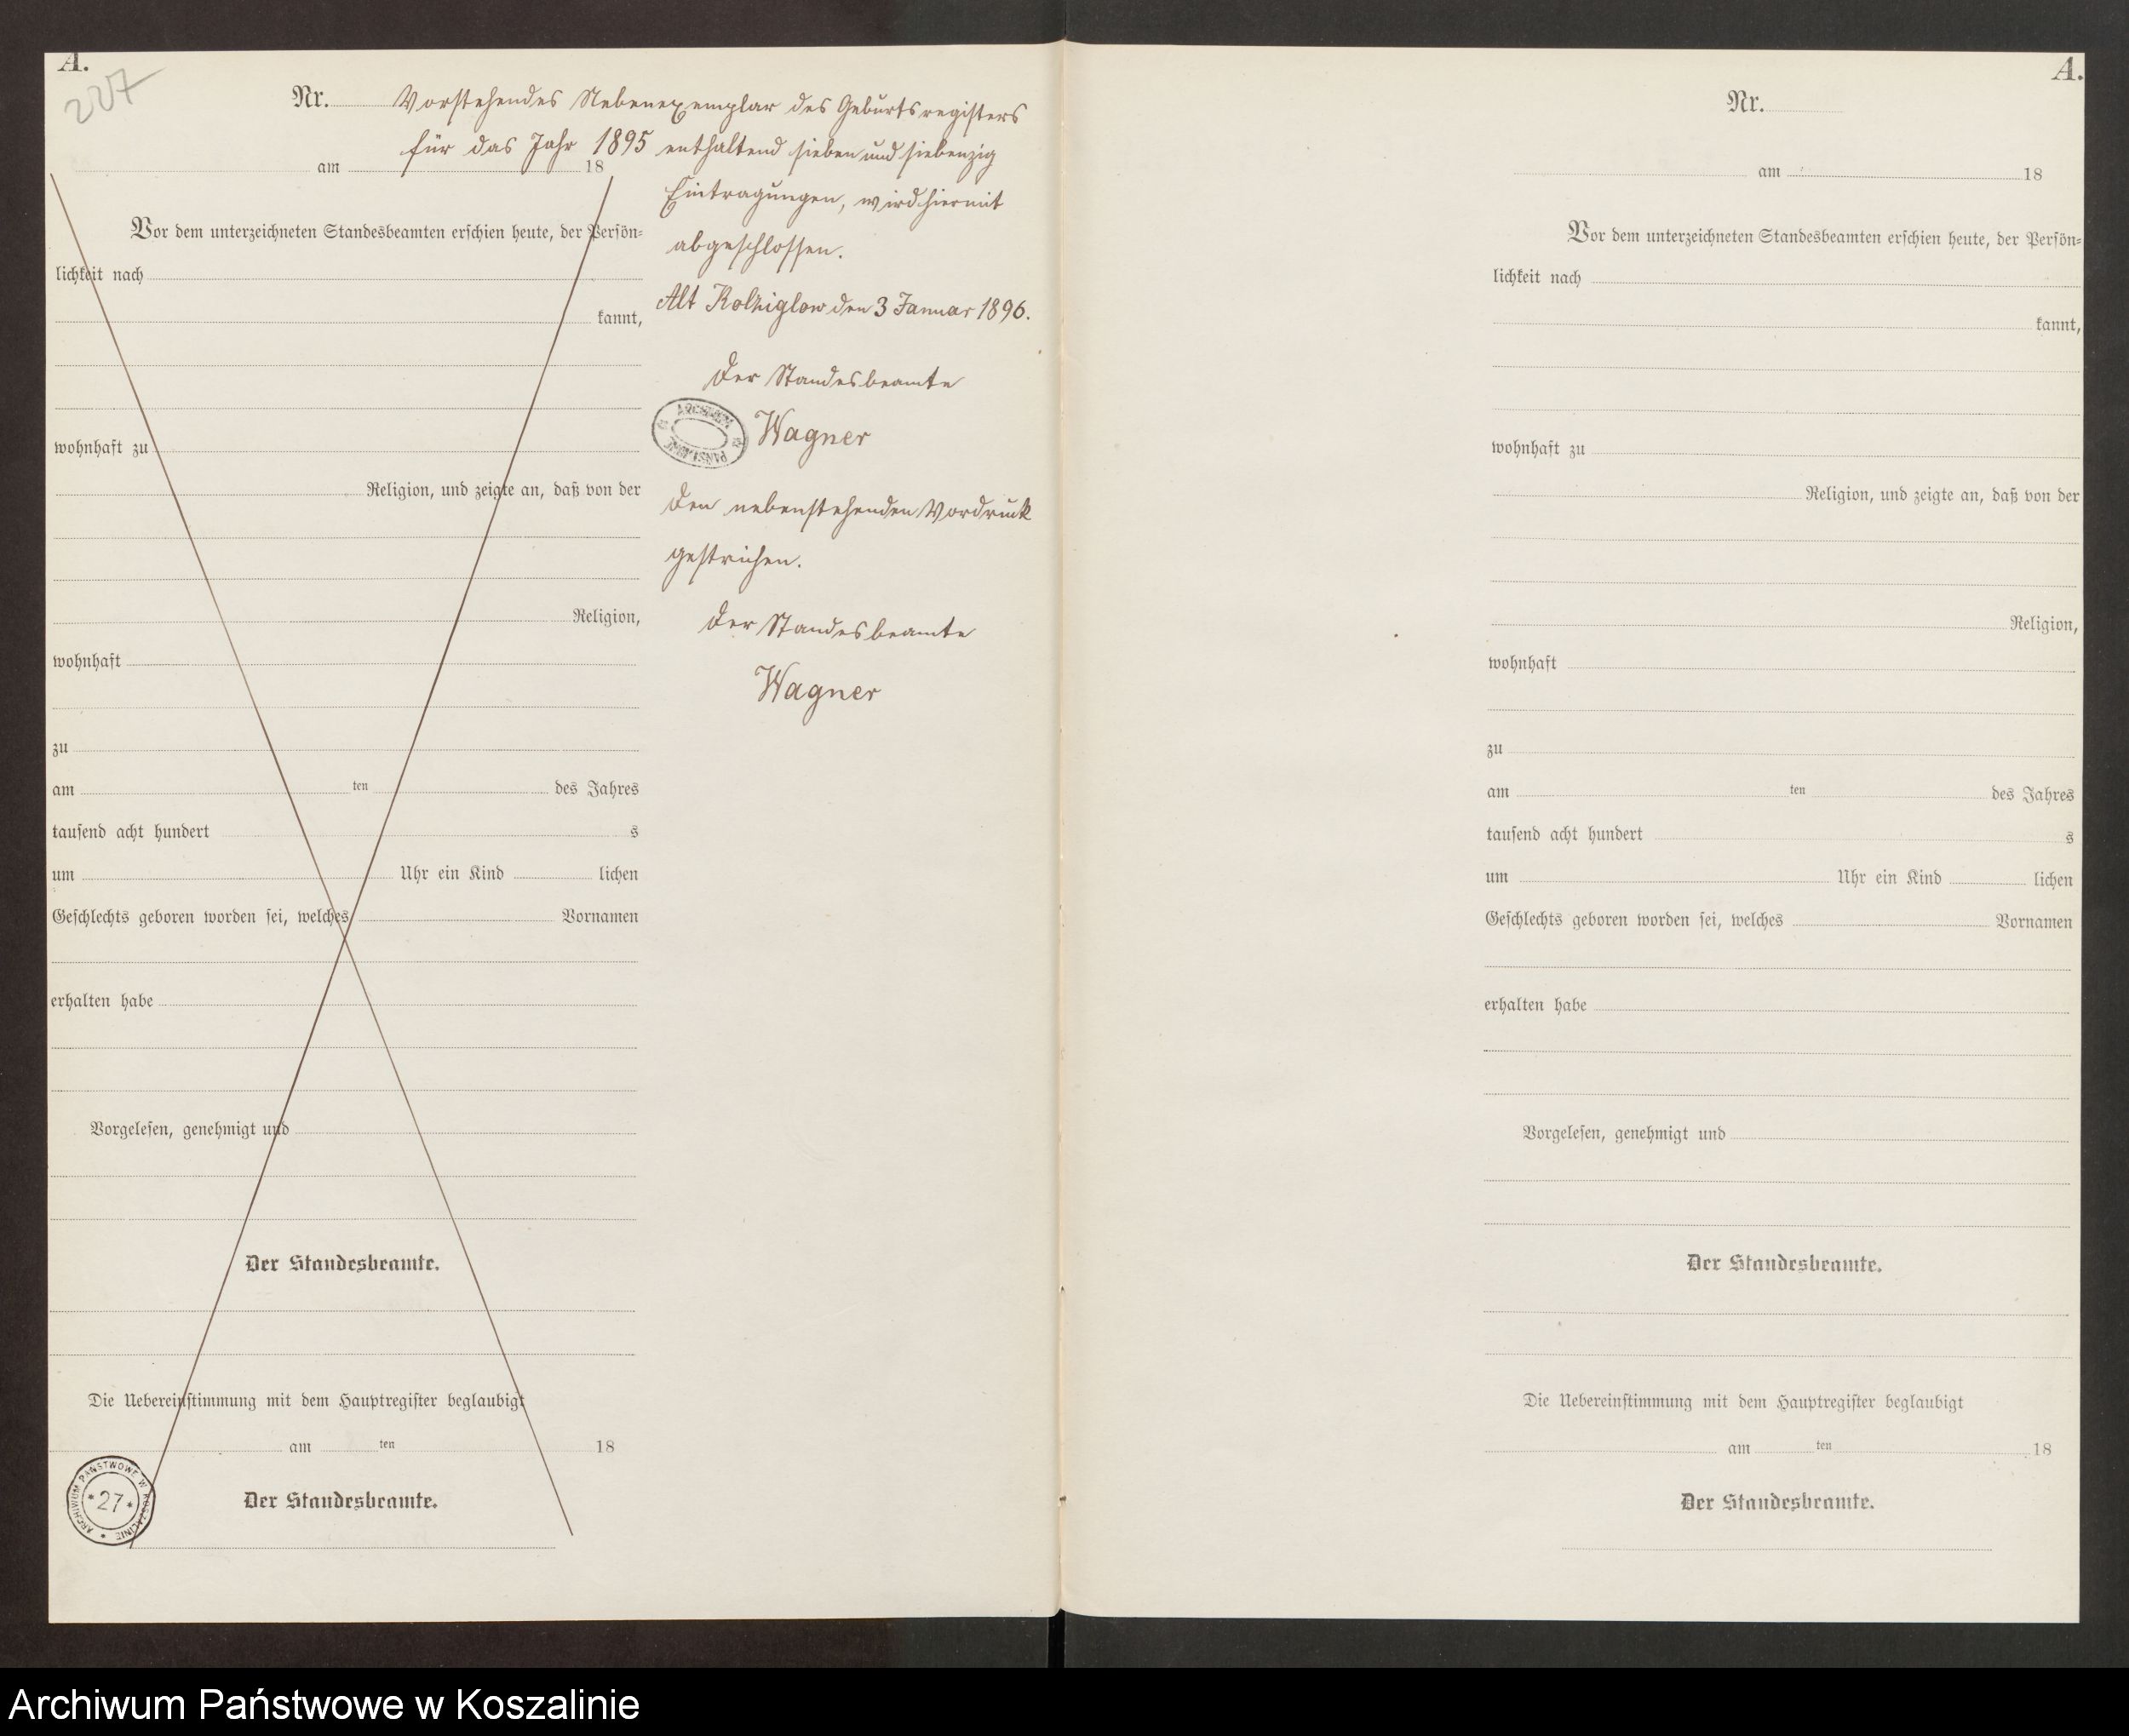 A.
227
Nr. Vorstehendes Nebenexemplar des Geburtsregisters
für das Jahr 1895 enthaltend sieben und siebenzig
am 18
Eintragungen, wird hiermit
abgeschlossen.
Alt Kolziglow den 3 Januar 1896.
Der Standesbeamte
Wagner
Den nebenstehenden Vordruck
gestrichen.
Der Standesbeamte
Wagner
Vor dem unterzeichneten Standesbeamten erschien heute, der Persön-
lichkeit nach
kannt,
wohnhaft zu
Religion, und zeigte an, daß von der
Religion,
wohnhaft
zu
am ten des Jahres
tausend acht hundert s
um Uhr ein Kind lichen
Geschlechts geboren worden sei, welches Vornamen
erhalten habe
Vorgelesen, genehmigt und
Der Standesbeamte.
Die Uebereinstimmung mit dem Hauptregister beglaubigt
am ten 18
Der Standesbeamte.
ARCHIWUM PAŃSTWOWE W KOSZALINIE
* 27 *
A.
Nr.
am 18
Vor dem unterzeichneten Standesbeamten erschien heute, der Persön-
lichkeit nach
kannt,
wohnhaft zu
Religion, und zeigte an, daß von der
Religion,
wohnhaft
zu
am ten des Jahres
tausend acht hundert s
um Uhr ein Kind lichen
Geschlechts geboren worden sei, welches Vornamen
erhalten habe
Vorgelesen, genehmigt und
Der Standesbeamte.
Die Uebereinstimmung mit dem Hauptregister beglaubigt
am ten 18
Der Standesbeamte.
Archiwum Państwowe w Koszalinie